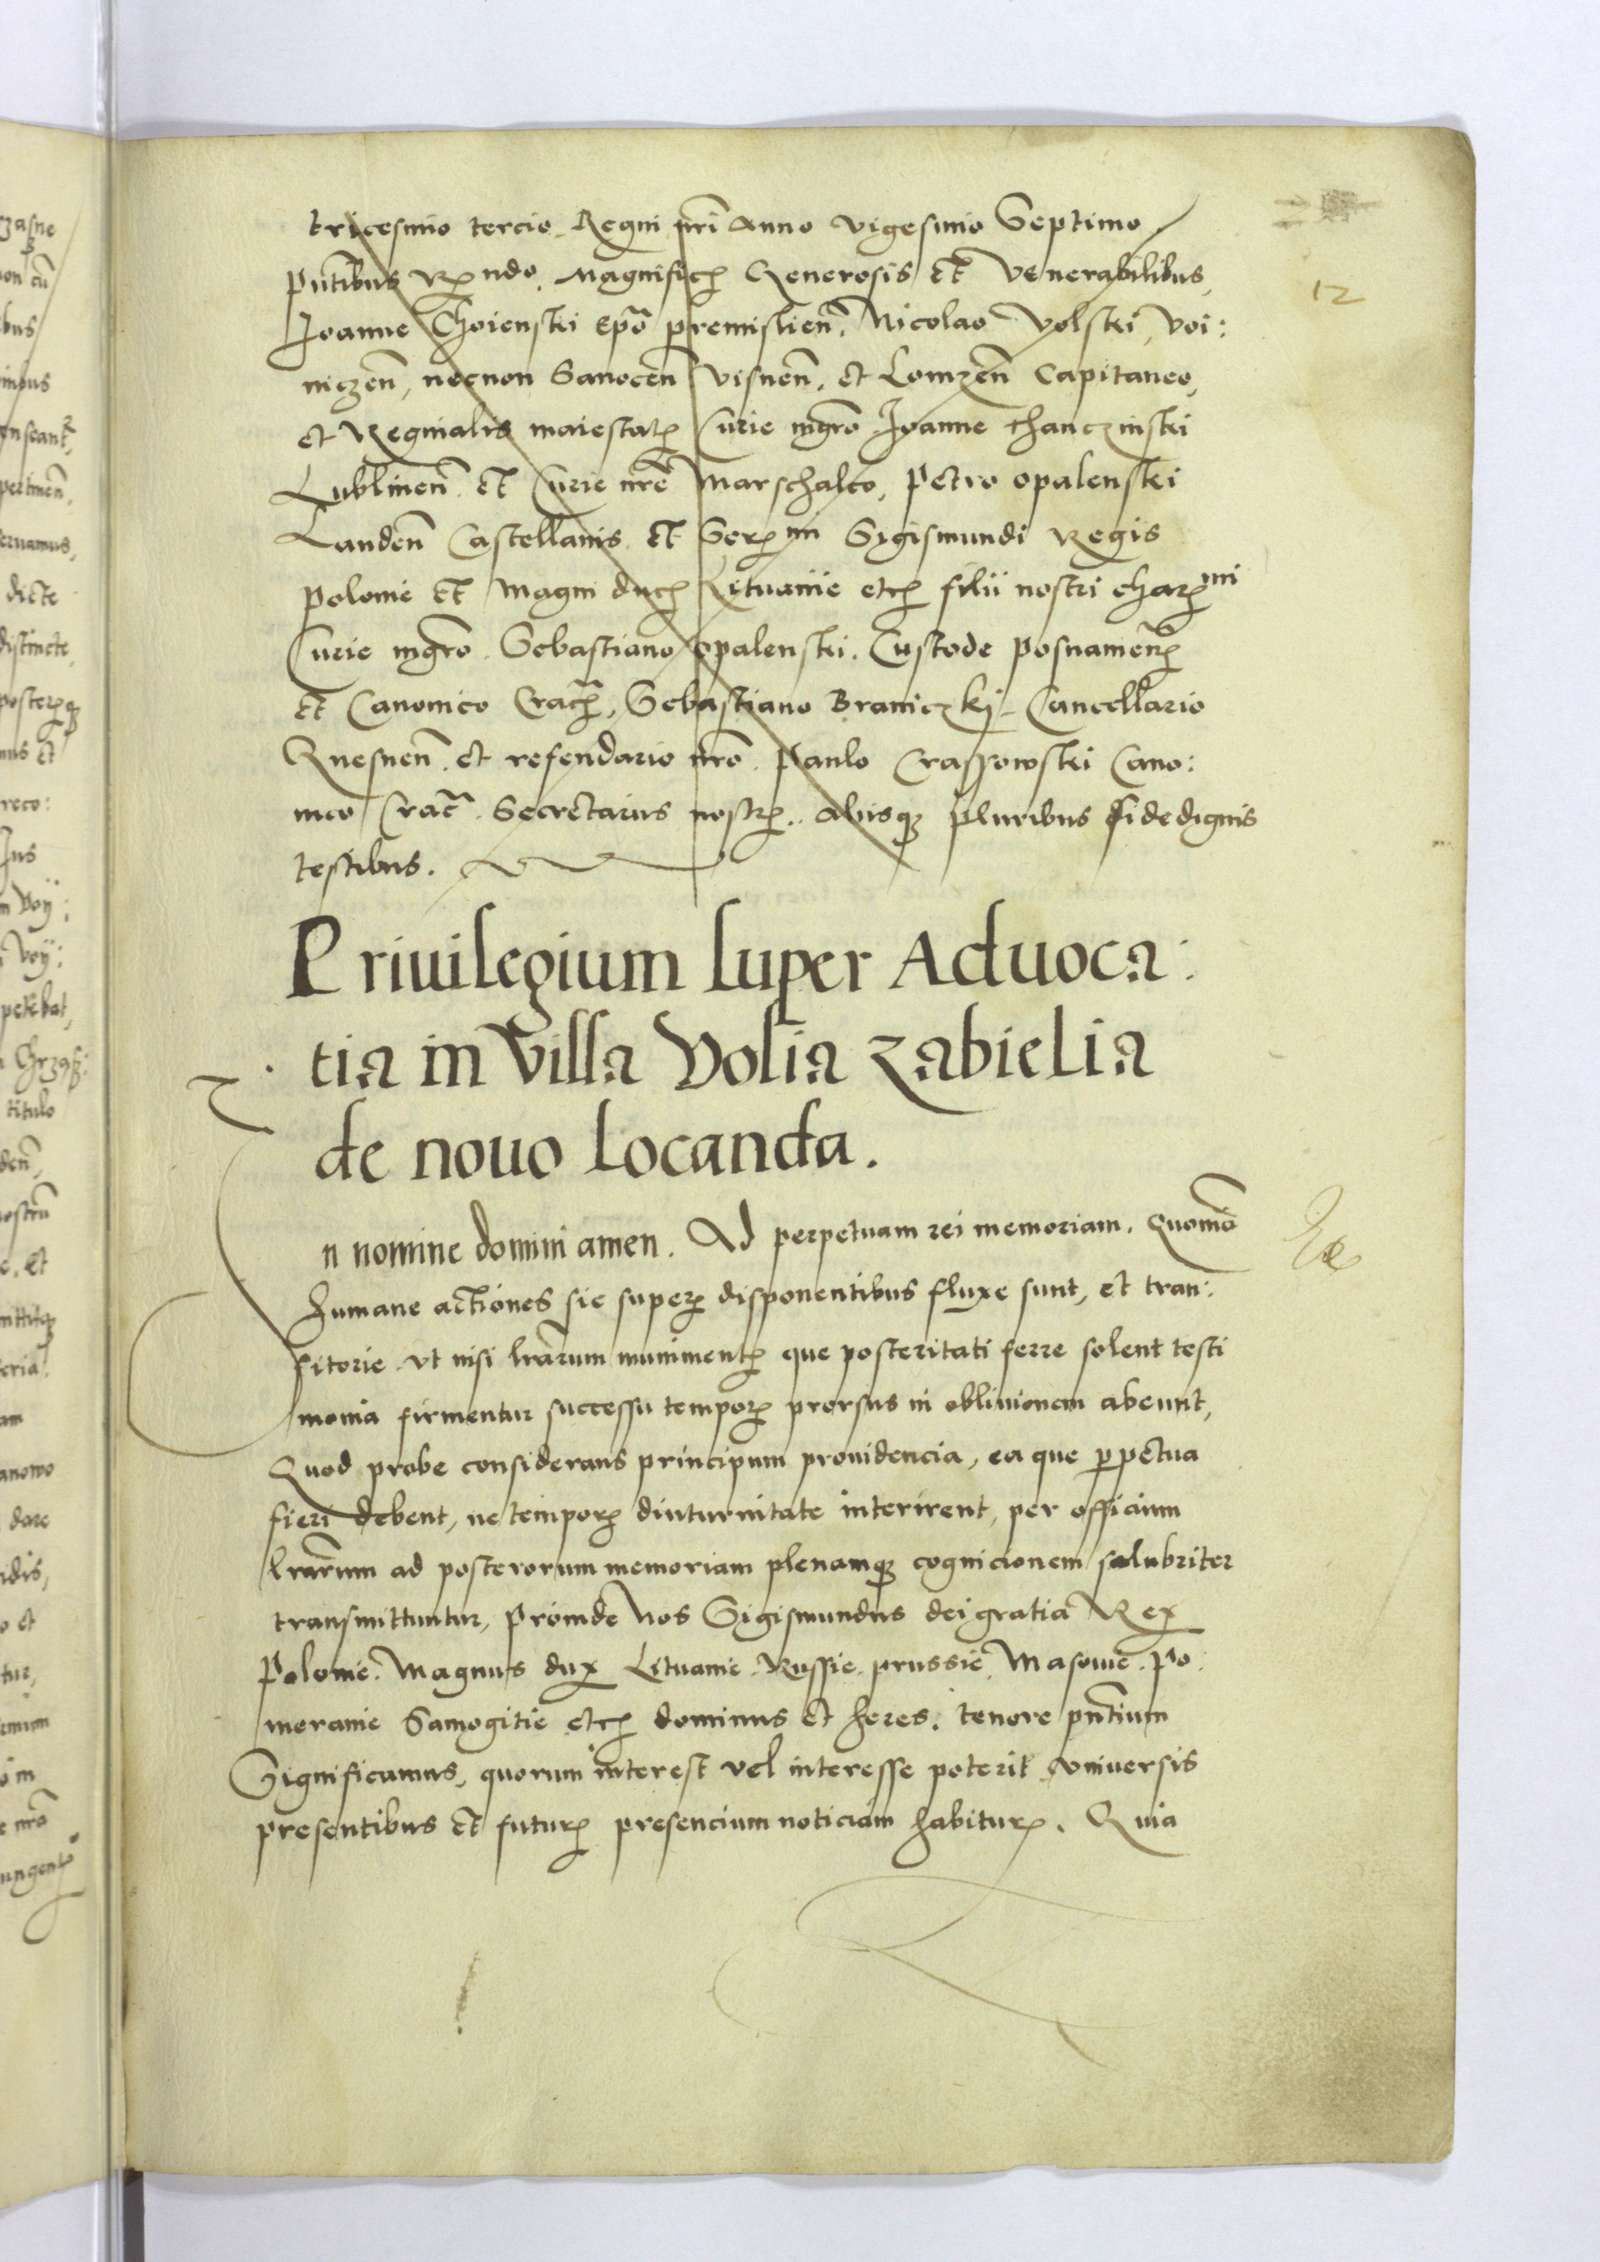 tricesimo tercio. Regni nrĩ Anno vigesimo Septimo
pñtibus ndo. Magnificꝭ Generosis et Venerabilibus,
Joanne Choienski Epõ premislien̄. Nicolao volski, voi:
niczen̄, necnon Sanocen̄ visnen̄. et Lomzen̄ Capitaneo,
et Reginalis maiestatꝭ Curie mgrõ Joanne Thanczinski
Lublinen̄. et Curie nrẽ Marschalco, Petro opalenski
Landen̄ Castellanis et Serꝭmi Sigismundi Regis
polonie et Magni ducꝭ Lituanie etcꝭ filii nostri charꝭmi
Curie mgrõ. Sebastiano opalenski. Custode posnanienꝭ
et Canonico Cracꝭ, Sebastiano Braniczkj Cancellario
Gnesnen̄. et refendario nrõ. Paulo Crassowski Cano:
nico Crac̃. Secretariis nostrꝭ. Aliisqꝫ pluribus fidedignis
testibus.
Priuilegium super Aduoca:
tia in villa Volia zabielia
de nouo locanda.
n nomine domini amen. Ad perpetuam rei memoriam. Quoniã
humane actiones sic superꝭ disponentibus fluxe sunt, et tran:
sitorie. vt nisi lrãrum munimentꝭ que posteritati ferre solent testi
monia firmentur successu temporꝭ prorsus in obliuionem abeunt,
Quod probe considerans principum prouidencia, ea que ꝑpetua
fieri debent, ne temporꝭ diuturnitate interirent, per officium
lrãrum ad posterorum memoriam plenamqꝫ cognicionem salubriter
transmittuntur, proinde Nos Sigismundus dei gratia Rex
Polonie. Magnus dux Lituanie. Russie. prussie. Masouie. Po:
meranie Samogitie etcꝭ dominus et heres. tenore pñtium
Significamus, quorum interest vel interesse poterit vniuersis
presentibus et futurꝭ presencium noticiam habiturꝭ. Quia
12